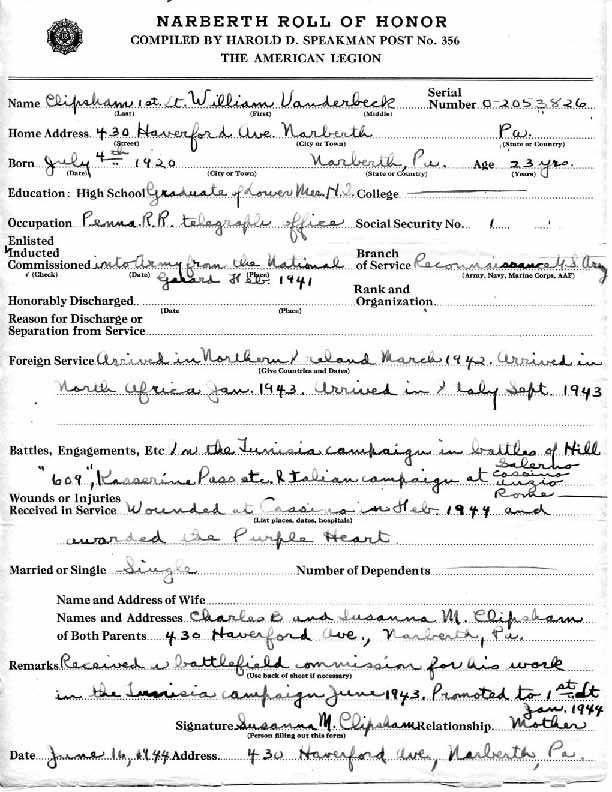 NARBERTH ROLL OF HONOR
COMPILED BY HAROLD D. SPEAKMAN POST No. 356
THE AMERICAN LEGION
Name Clipsham 1st Lt. William Vanderbeck Serial Number O-2053826
(Last) (First) (Middle)
Home Address 430 Haverford Ave. Narberth Pa.
(Street) (City or Town) (State or Country)
Born July 4th 1920 Narberth, Pa. Age 23 yrs.
(Date) (City or Town) (State or Country) (Years)
Education: High School Graduate of Lower Mer. H.S. College
Occupation Penna. R.R. telegraph office Social Security No.
Enlisted
Inducted
Commissioned into Army from the National Branch of Service Reconnaissance U.S. Army
√ (Check) (Date) (Place) (Army, Navy, Marine Corps, AAF)
Guard Feb. 1941
Honorably Discharged Rank and Organization
(Date (Place)
Reason for Discharge or
Separation from Service
Foreign Service Arrived in Northern Ireland March 1942. Arrived in
(Give Countries and Dates)
North Africa Jan. 1943. Arrived in Italy Sept. 1943
Battles, Engagements, Etc In the Tunisia campaign in battles of Hill
"609", Kasserine Pass etc. & Italian campaign at Salerno
Cassino
Anzio
Rome
Wounds or Injuries
Received in Service Wounded at Cassino in Feb. 1944 and
(List places, dates, hospitals)
awarded the Purple Heart.
Married or Single Single Number of Dependents
Name and Address of Wife
Names and Addresses Charles B and Susanna M. Clipsham
of Both Parents 430 Haverford Ave., Narberth, Pa.
Remarks Received a battlefield commission for his work
(Use back of sheet if necessary)
in the Tunisia campaign June 1943. Promoted to 1st Lt
Jan. 1944
Signature Susanna M. Clipsham Relationship Mother
(Person filling out this form)
Date June 16, 1944 Address 430 Haverford Ave, Narberth, Pa.